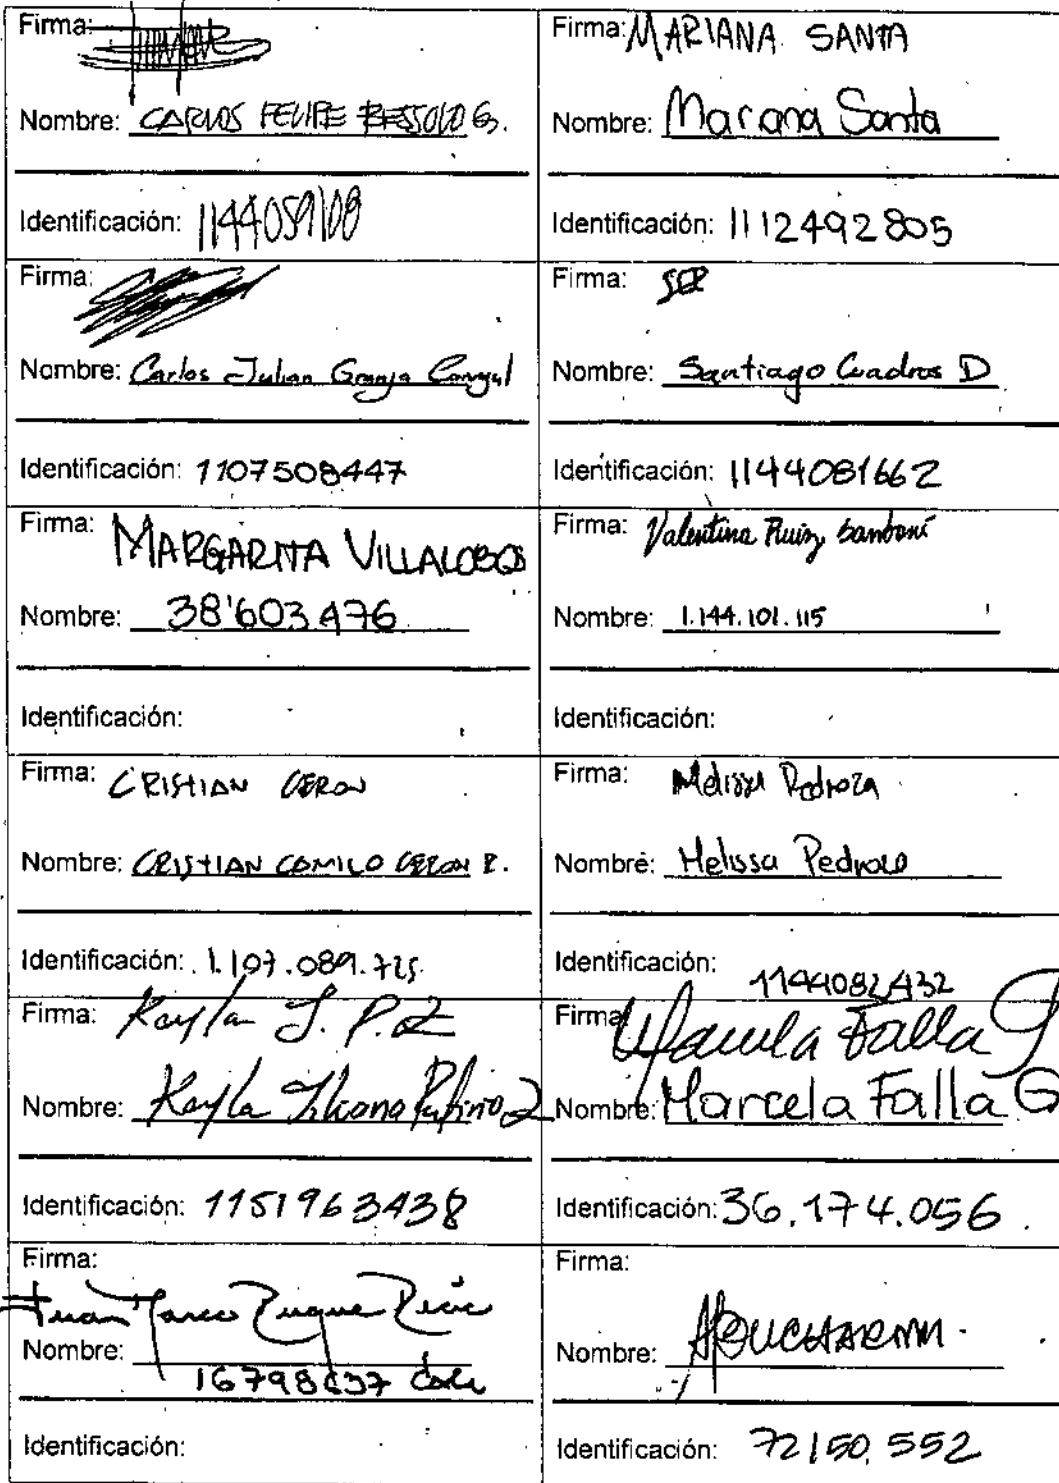 Firma:
Nombre: CARLOS FELIPE G.
Identificación: 1144059108
Firma: MARIANA SANTA
Nombre: Mariana Santa
Identificación: 1112492805
Firma:
Nombre: Carlos Julian Granja
Identificación: 1107508447
Firma:
Nombre: Santiago Cuadros D
Identificación: 1144081662
Firma: MARGARITA VILLALOBOS
Nombre: 38'603.476
Identificación:
Firma: Valentina Ruiz Samboní
Nombre: 1.144.101.115
Identificación:
Firma: CRISTIAN CERON
Nombre: CRISTIAN CAMILO CERON R.
Identificación: 1.107.089.725
Firma: Melissa Pedroza
Nombre: Melissa Pedroza
Identificación: 1144082432
Firma: Kayla J. P. Z
Nombre: Kayla
Identificación: 1151963438
Firma: Marcela Falla G
Nombre: Marcela Falla G
Identificación: 36.174.056
Firma:
Juan Marco
Nombre:
Cali
Identificación:
Firma:
Nombre:
Identificación: 72150.552